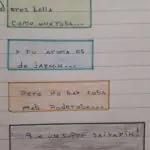 eres bella
como una rosa...
y tu aroma es
de jazmín...
Pero no hay cosa
más poderosa...
que un super saiyayin!